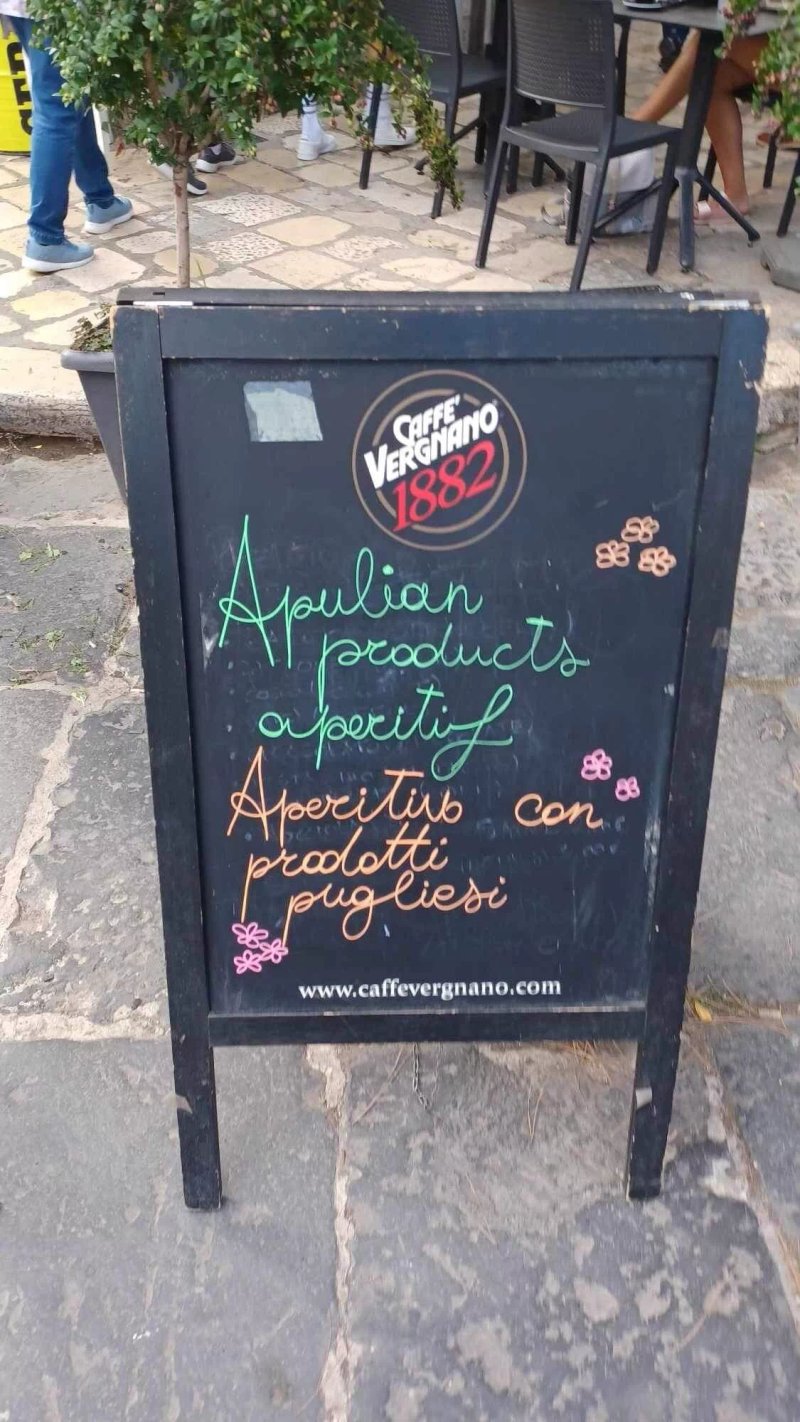 CAFFE'
VERGNANO
1882
Apulian
products
aperitif
Aperitivo con
prodotti
pugliesi
www.caffevergnano.com